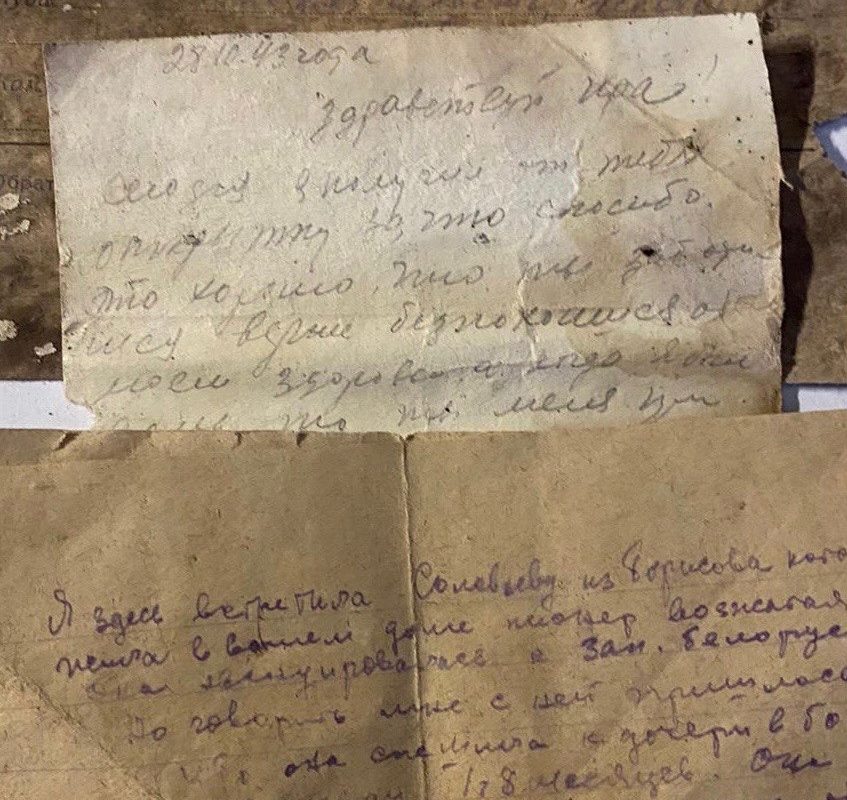 28.10.43 года
Здравствуй Ира!
Сегодня я получил от тебя
открытку за что спасибо.
это хорошо что ты
безпокоишся об
моем
что ты меня
Я здесь встретила Соловьеву из Борисова
жила в вашем доме пионер вожатая
Она эвакуировалась с Зап. Белорус
По говорить мне с ней пришлось
она спешила к дочери в бо
1г 8 месяцев. Они